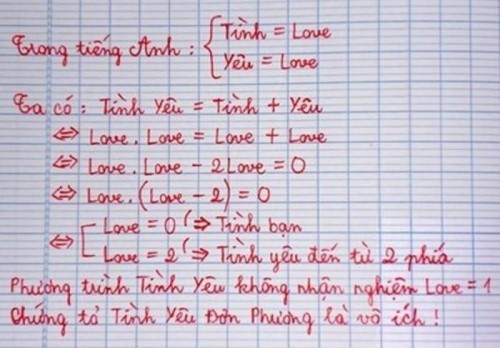 Trong tiếng Anh : { Tình = Love
Yêu = Love
Ta có : Tình Yêu = Tình + Yêu
⇔ Love . Love = Love + Love
⇔ Love . Love - 2Love = 0
⇔ Love . (Love - 2) = 0
⇔ [ Love = 0 (⇒ Tình bạn
Love = 2 (⇒ Tình yêu đến từ 2 phía
Phương trình Tình Yêu không nhận nghiệm Love = 1
Chứng tỏ Tình Yêu Đơn Phương là vô ích !